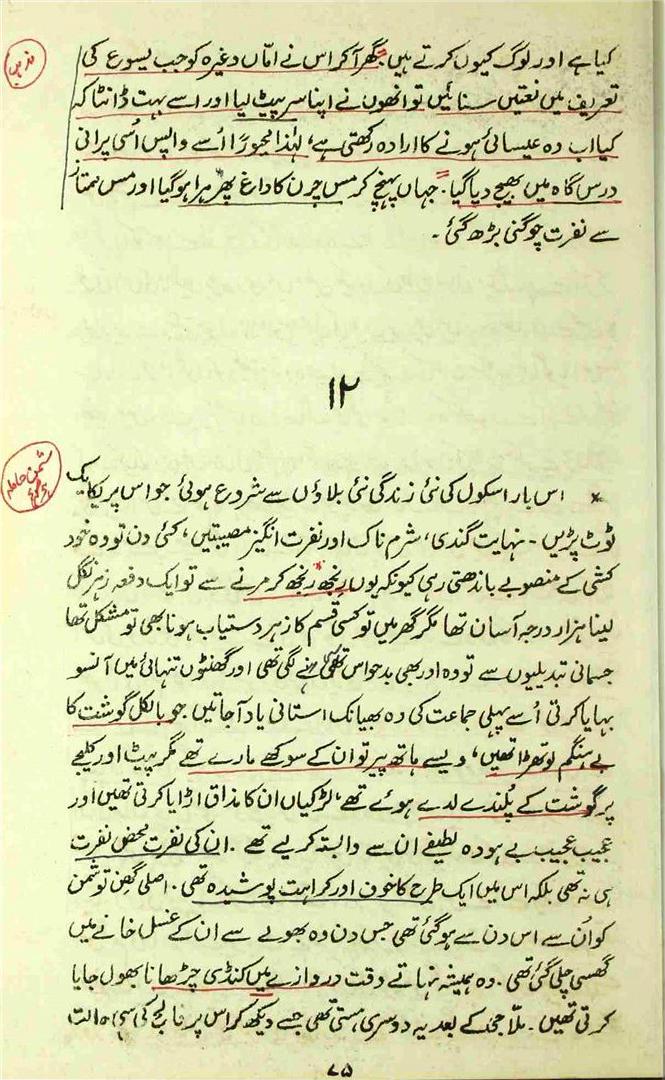 کیا ہے اور لوگ کیوں کرتے ہیں؛ گھر آکر اس نے امّاں وغیرہ کو جب یسوع کی
تعریف میں نعتیں سنائیں تو انھوں نے اپنا سر پیٹ لیا اور اسے بہت ڈانٹا کہ
کیا اب وہ عیسائی ہونے کا ارادہ رکھتی ہے، لہٰذا مجبوراً اُسے واپس اُسی پرانی
درس گاہ میں بھیج دیا گیا۔ جہاں پہنچ کر مس چرن کا داغ پھر ہرا ہو گیا اور مس ممتاز
سے نفرت چوگنی بڑھ گئی۔
مذہب
۱۲
شمن حاملہ
اس بار اسکول کی نئی زندگی نئی بلاؤں سے شروع ہوئی جو اس پر یکایک
ٹوٹ پڑیں۔ نہایت گندی، شرم ناک اور نفرت انگیز مصیبتیں، کئی دن تو وہ خود
کشی کے منصوبے باندھتی رہی کیونکہ یوں رنجھ رنجھ کر مرنے سے تو ایک دفعہ زہر نگل
لینا ہزار درجہ آسان تھا مگر گھر میں تو کسی قسم کا زہر دستیاب ہونا بھی تو مشکل تھا
جسمانی تبدیلیوں سے تو وہ اور بھی بدحواس رہنے لگی تھی اور گھنٹوں تنہائی میں آنسو
بہایا کرتی اُسے پہلی جماعت کی وہ بھیانک استانی یاد آجاتیں جو بالکل گوشت کا
بے ہنگم لوتھڑا تھیں، ویسے ہاتھ پیر تو ان کے سوکھے مارے تھے مگر پیٹ اور کلیجے
پر گوشت کے پُلندے لدے ہوئے تھے، لڑکیاں ان کا مذاق اڑایا کرتی تھیں اور
عجیب عجیب بے ہودہ لطیفے ان سے وابستہ کر لیے تھے۔ ان کی نفرت محض نفرت
ہی نہ تھی بلکہ اس میں ایک طرح کا خون اور کراہت پوشیدہ تھی۔ اصلی گھِن تو شمن
کو اُن سے اس دن سے ہو گئی تھی جس دن وہ بھولے سے ان کے غسل خانے میں
گھسی چلی گئی تھی۔ وہ ہمیشہ نہاتے وقت دروازے میں کنڈی چڑھانا بھول جایا
کرتی تھیں۔ ملّا جی کے بعد یہ دوسری ہستی تھی جسے دیکھ کر اس پر فالج کی سی حالت
۷۵